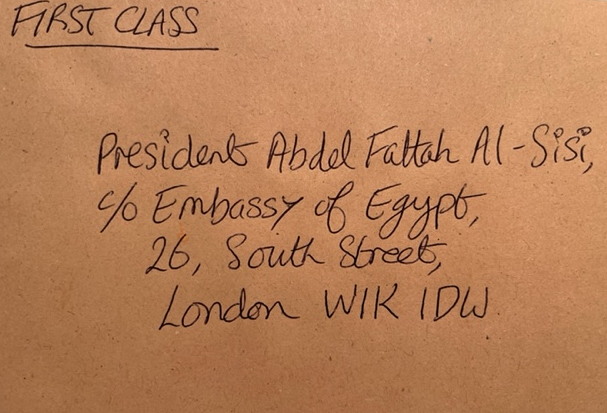 FIRST CLASS
President Abdel Fattah Al-Sisi,
c/o Embassy of Egypt,
26, South Street,
London W1K 1DW